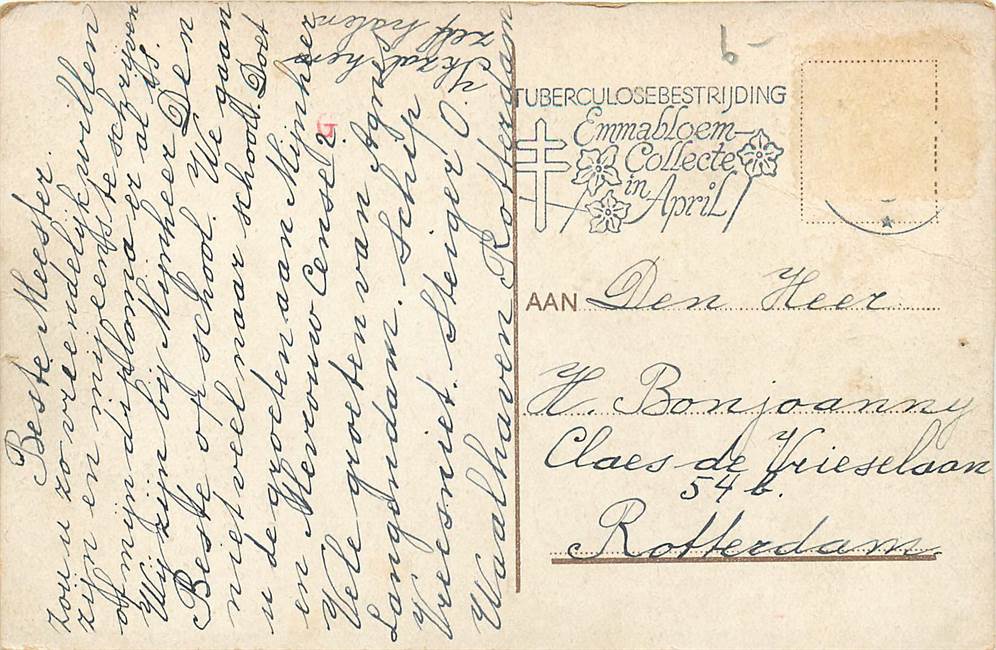 Beste Meester.
zou u zo vreendelijk willen
zijn en mij eens te schrijven
of mijn diploma er al is.
Wij zijn bij Mijnheer Den
Beste op school. We gaan
niet veel naar school. Doet
u de groeten aan Mijnheer
en Mevrouw Censse?
Vele groeten van Agnes
Langendam. Schip
Vreesniet. Steiger O.
Waalhaven Rotterdam
Ik zal hem
zelf halen
6-
TUBERCULOSEBESTRIJDING
Emmabloem-
Collecte
in
April
AAN Den Heer
H. Bonjoanny
Claes de Vrieselaan
54 b.
Rotterdam